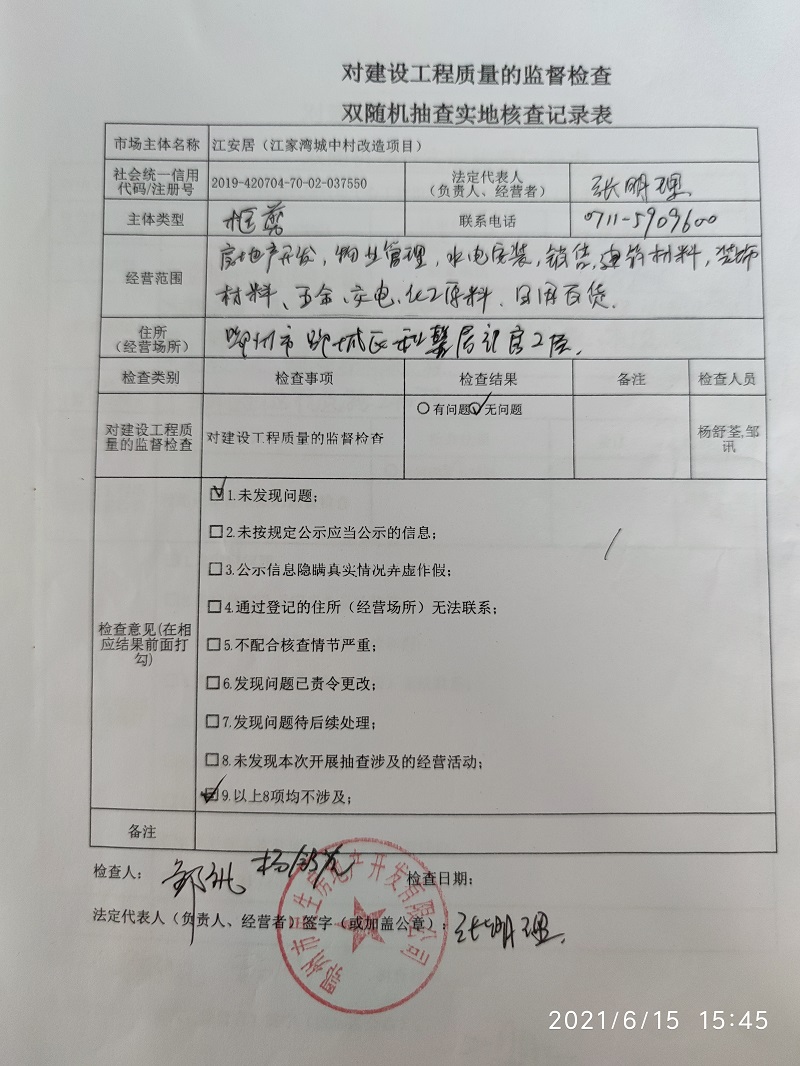 对建设工程质量的监督检查
双随机抽查实地核查记录表
市场主体名称 江安居（江家湾城中村改造项目）
社会统一信用代码/注册号 2019-420704-70-02-037550 法定代表人（负责人、经营者） 张明理
主体类型 框剪 联系电话 0711-5909600
经营范围 房地产开发，物业管理，水电安装，销售，建筑材料，装饰
材料、五金、交电、化工原料、日用百货.
住所（经营场所） 鄂州市鄂城区
检查类别 检查事项 检查结果 备注 检查人员
对建设工程质量的监督检查 对建设工程质量的监督检查 有问题 无问题 杨舒荃,邹讯
检查意见(在相应结果前面打勾)
1.未发现问题；
2.未按规定公示应当公示的信息；
3.公示信息隐瞒真实情况弄虚作假；
4.通过登记的住所（经营场所）无法联系；
5.不配合核查情节严重；
6.发现问题已责令更改；
7.发现问题待后续处理；
8.未发现本次开展抽查涉及的经营活动；
9.以上8项均不涉及；
备注
检查人： 邹讯 杨舒荃 检查日期：
法定代表人（负责人、经营者）签字（或加盖公章）：张明理.
2021/6/15 15:45